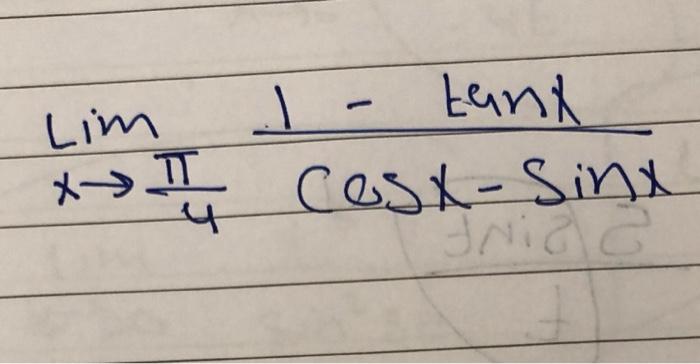 Lim x→π/4 (1 - tanx)/(Cosx - Sinx)